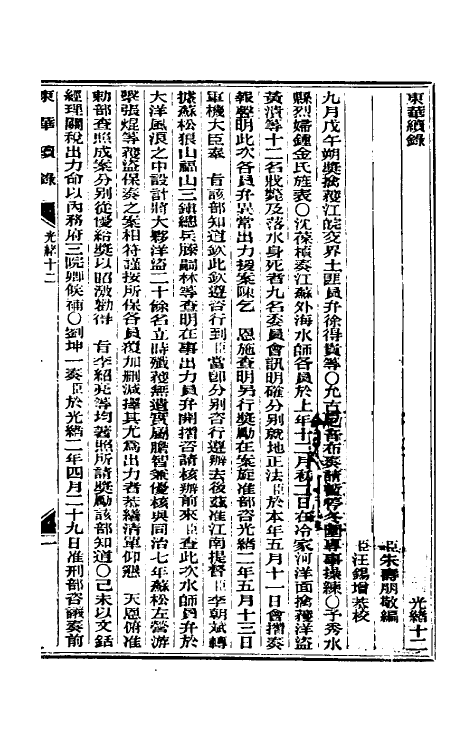 東華續錄
光緒十二
臣朱壽朋敬編
臣汪錫增恭校
九月戊午朔獎擒獲江皖交界土匪員弁徐得貴等〇允古勒音布奏請暫停合圍專事操練〇予秀水
縣烈婦鍾金氏旌表〇沈葆楨奏江蘇外海水師各員於上年十二月初二日在冷家河洋面擒獲洋盜
黃濆等十二名戕斃及落水身死者九名委員會訊明確分別就地正法臣於本年五月十一日會摺奏
報聲明此次各員弁異常出力援案陳乞　恩施查明另行獎勵在案旋准部咨光緒二年五月十三日
軍機大臣奉　旨該部知道欽此欽遵咨行到臣當卽分別咨行遵辦去後茲准江南提督臣李朝斌轉
據蘇松狼山福山三鎮總兵滕嗣林等查明在事出力員弁開摺咨請核辦前來臣查此次水師員弁於
大洋風浪之中設計將大夥洋盜二十餘名立時殲獲無遺實屬膽智兼優核與同治七年蘇松左營游
擊張焜等獲盜保奏之案相符謹按所保各員覆加刪減擇其尤為出力者恭繕清單仰懇　天恩俯准
勅部查照成案分別從優給獎以昭激勸得　旨李紹英等均著照所請獎勵該部知道〇己未以文銛
經理關稅出力命以內務府三院卿候補〇劉坤一奏臣於光緒二年四月二十九日准刑部咨議奏前
東華續錄
光緒十二
一